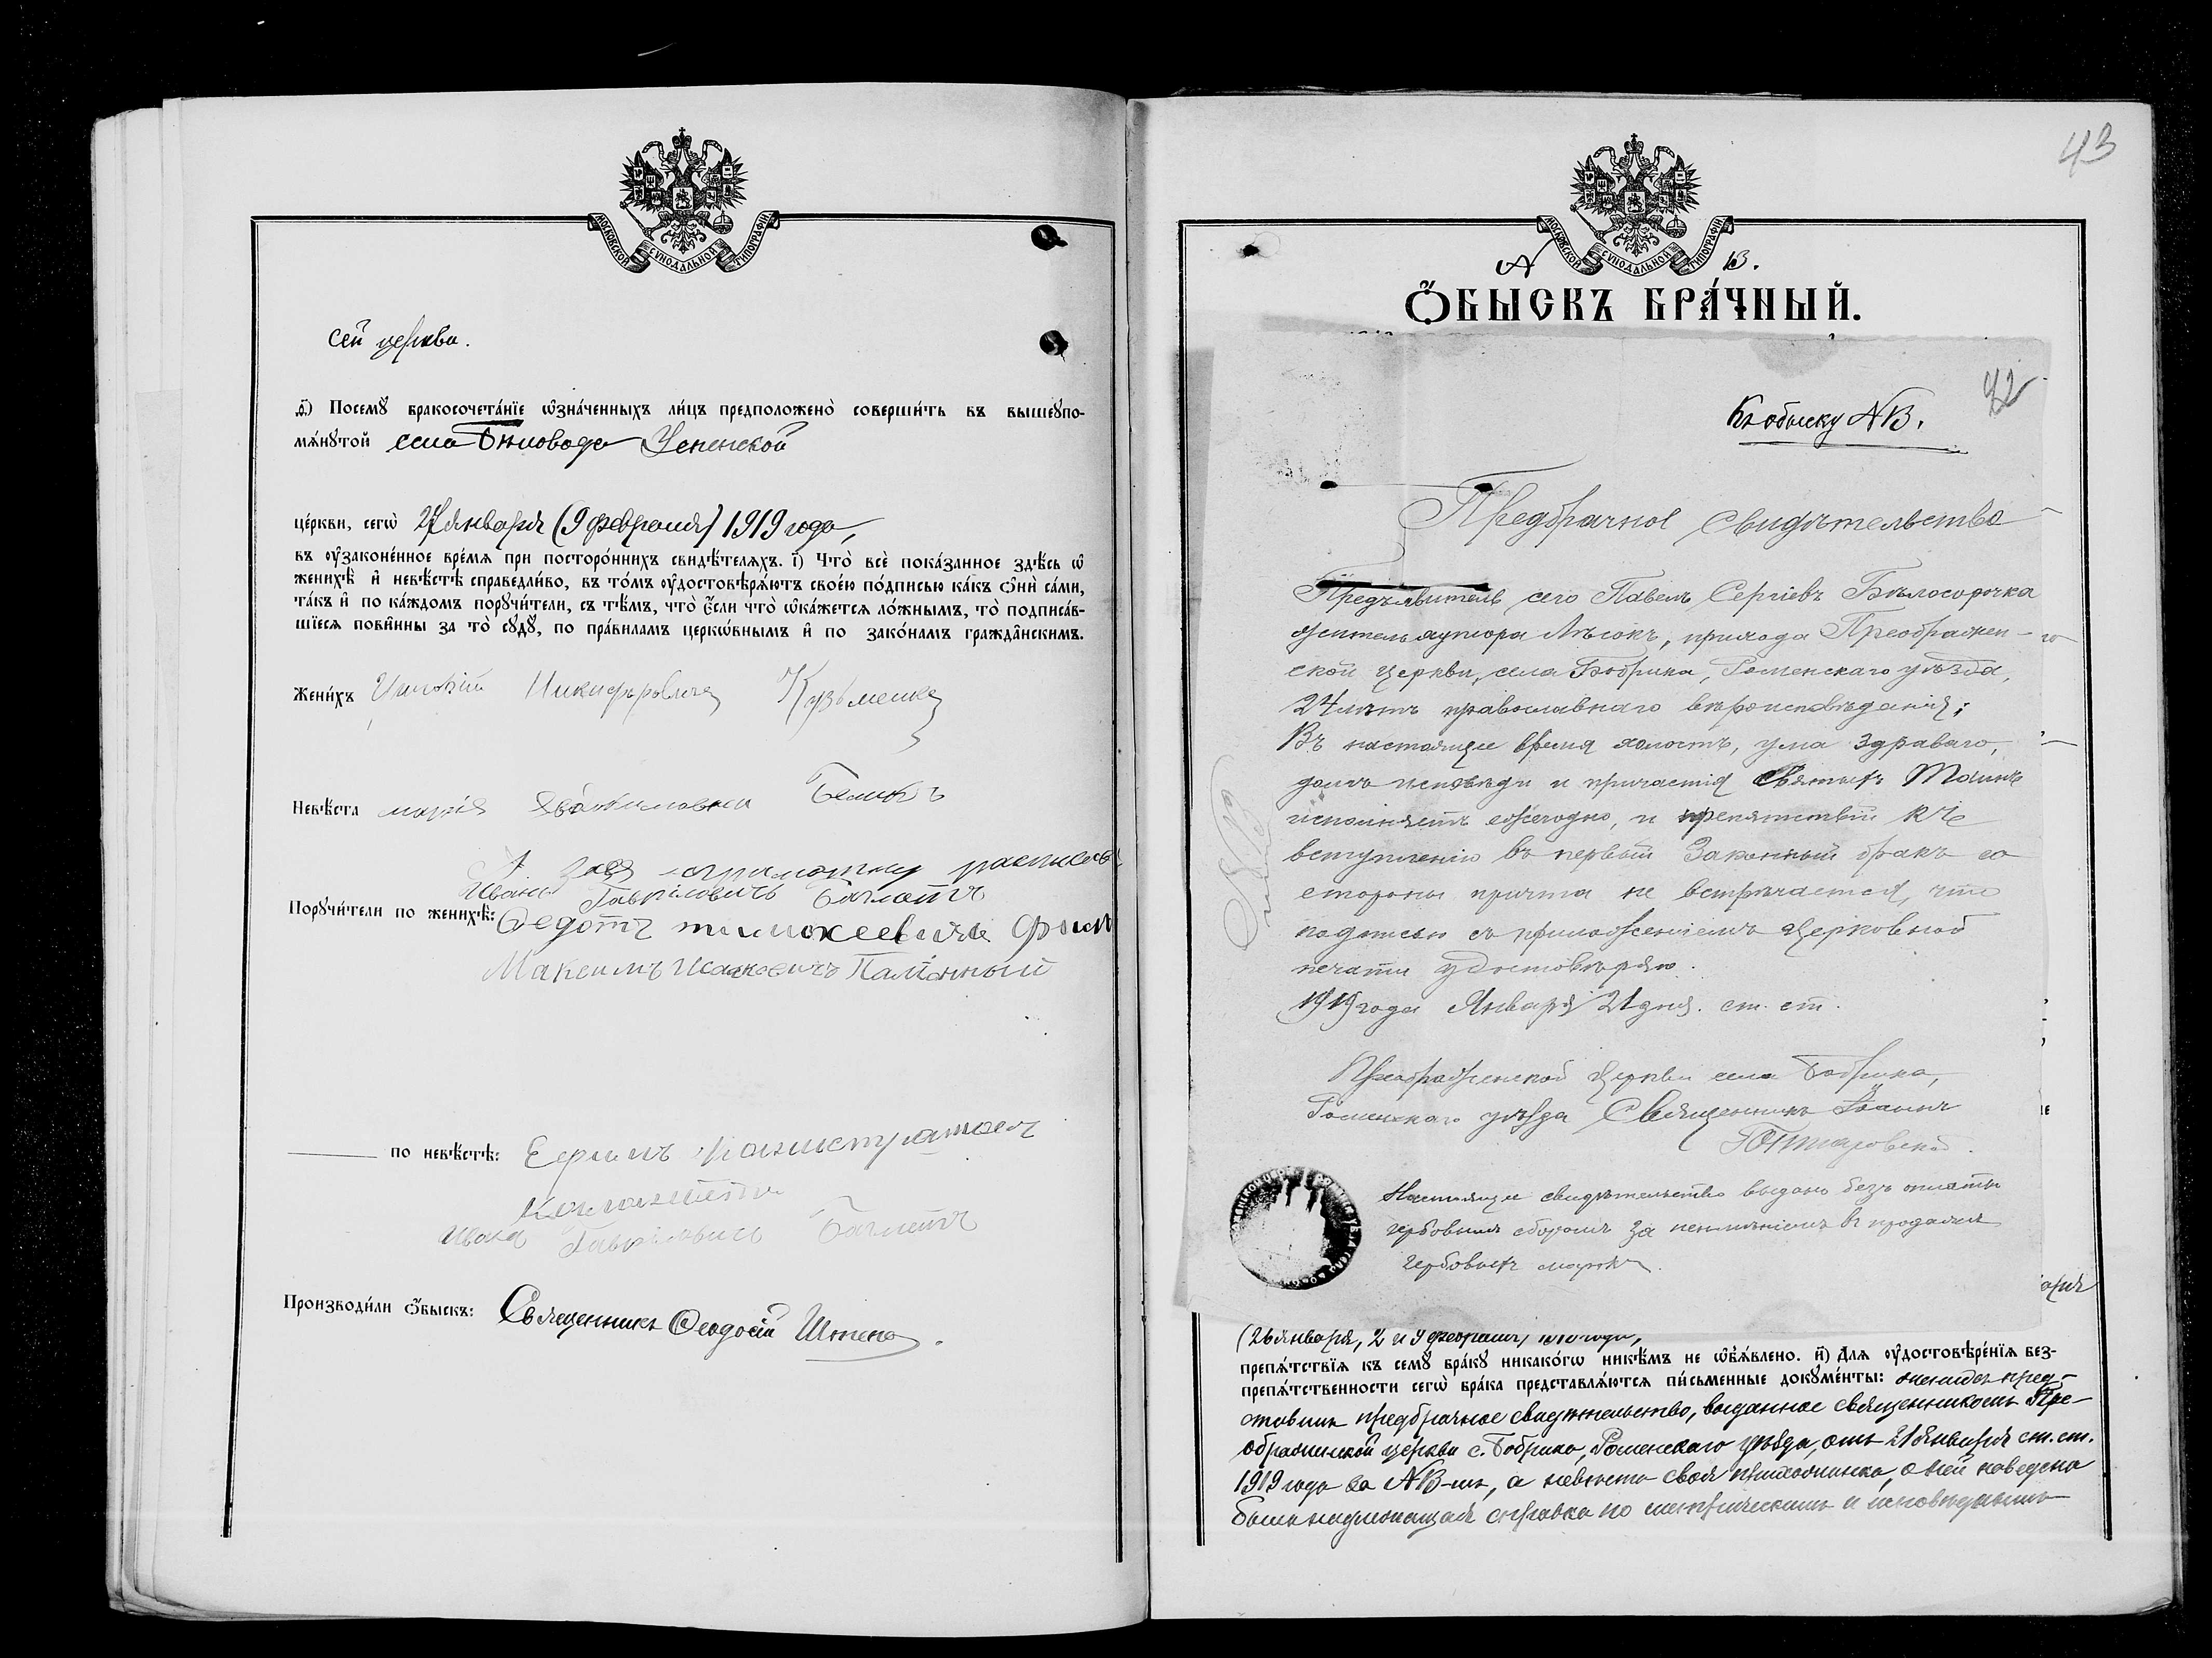 МОСКОВСКОЙ СѴНОДАЛЬНОЙ ТИПОГРАФІИ
сей церкви.
Посемꙋ̀ бракосочета́нїе ѡ҆зна́ченныхъ ли́цъ предположено̀ соверши́ть въ вышеꙋпо-
мѧ́нꙋтой села Бѣловода Успенской
це́ркви, сегѡ̀ 27 января (9 февраля) 1919 года,
въ ᲂу҆зако́ненное вре́мѧ при посторо́ннихъ свидѣ́телѧхъ. і҃) Что̀ всѐ пока́занное здѣ́сь ѡ҆
женихѣ̀ и҆ невѣ́стѣ справедли́во, въ то́мъ ᲂу҆достовѣрѧ́ютъ свое́ю по́дписью ка́къ ѻ҆нѝ са́ми,
та́къ и҆ по ка́ждомъ порꙋчи́тели, съ тѣ́мъ, что̀ є҆́сли что̀ ѡ҆ка́жетсѧ ло́жнымъ, то̀ подписа́в-
шїесѧ пови́нны за то̀ сꙋдꙋ̀, по пра́виламъ церко́внымъ и҆ по зако́намъ гражда́нскимъ.
Жени́хъ Никифоровичъ Кузьменко
Невѣ́ста марія
Иванъ Гавриловичъ
Порꙋчи́тели по женихѣ̀: Федотъ тимохеевичъ
Максимъ Исаковичъ
по невѣ́стѣ: Ефимъ
Иванъ Гавриловичъ
Производи́ли ѻ҆́быскъ: Священникъ Ѳеодосій
43
МОСКОВСКОЙ СѴНОДАЛЬНОЙ ТИПОГРАФІИ
№ 13.
Ѻ҆́БЫСКЪ БРА́ЧНЫЙ.
42
Къ обыску № 13.
Предбрачное свидѣтельство
Предъявитель сего Павелъ Сергіевъ Бѣлосорочка
житель хутора Лѣсокъ, прихода Преображен-
ской церкви, села Бобрика, Роменскаго уѣзда,
24 лѣтъ православнаго вѣроисповѣданія;
Въ настоящее время холостъ, ума здраваго,
долгъ исповѣди и причастія Святыхъ Таинъ
исполняетъ ежегодно, и препятствій къ
вступленію въ первый законный бракъ со
стороны причта не встрѣчается, что
подписью съ приложеніемъ церковной
печати удостовѣряю.
1919 года Января 21 дня. ст. ст.
Преображенской церкви села Бобрика,
Роменскаго уѣзда Священникъ Іоаннъ
Настоящее свидѣтельство выдано безъ оплаты
гербовымъ сборомъ за неимѣніемъ въ продажѣ
гербовыхъ марокъ.
(26 января, 2 и 9 февраля) 1919 года,
препѧ́тствїѧ къ семꙋ̀ бра́кꙋ никако́гѡ никѣ́мъ не ѡ҆б̾ѧ́влено. и҃) Длѧ ᲂу҆достовѣре́нїѧ без-
препѧ́тственности сегѡ̀ бра́ка представлѧ́ютсѧ пи́сьменные докꙋме́нты: женихъ пред-
ставилъ предбрачное свидѣтельство, выданное священникомъ Пре-
ображенской церкви с. Бобрика, Роменскаго уѣзда, отъ 21 января ст. ст.
1919 года за № 13-мъ, а невѣста своя прихожанка, о ней наведена
была надлежащая справка по метрическимъ и исповѣднымъ